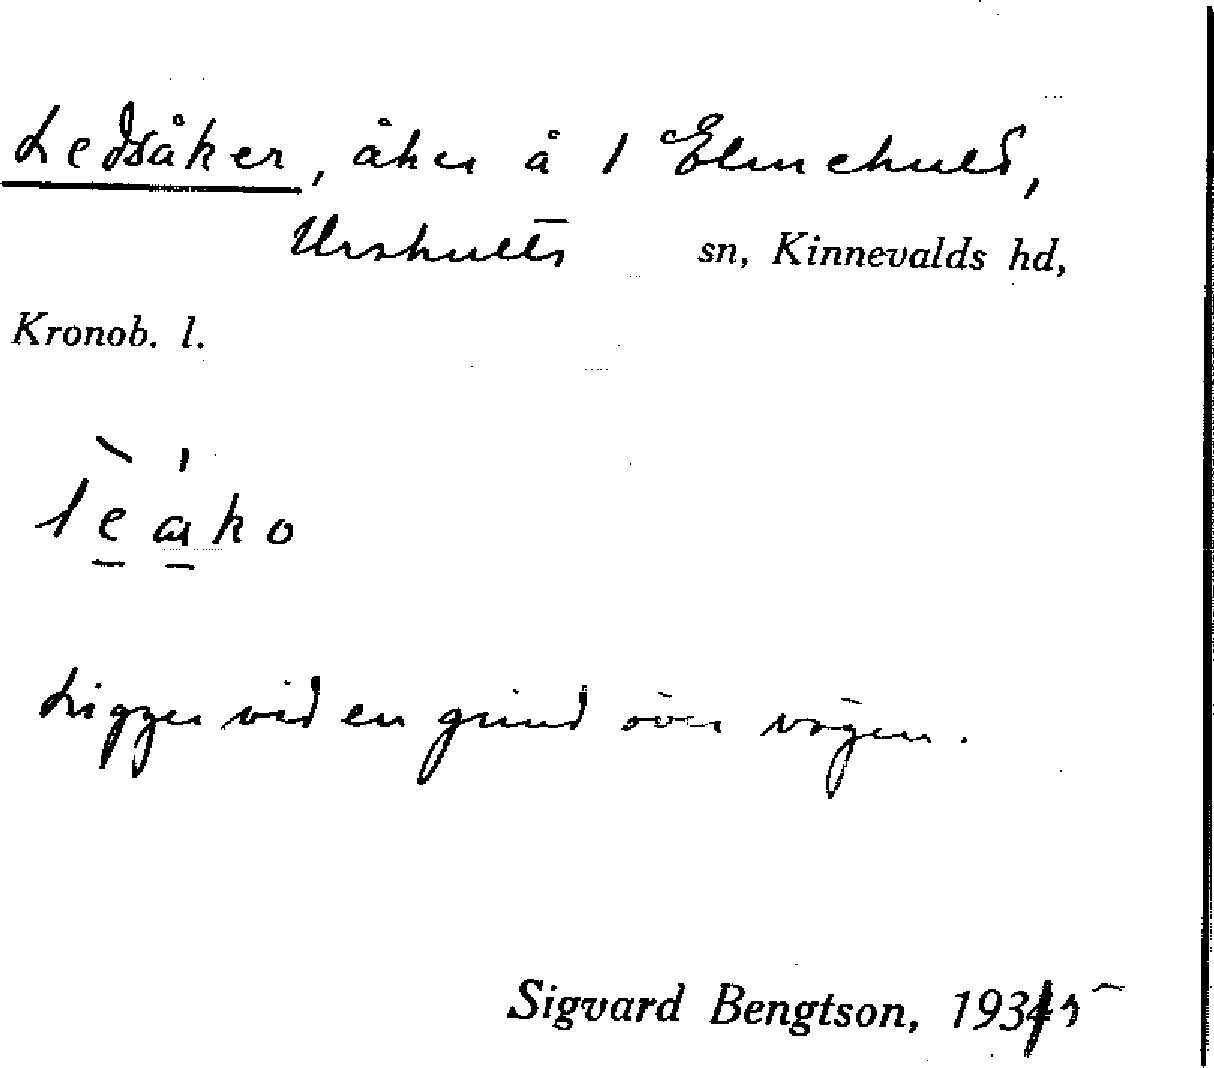 Ledsåker, åker å 1 Elmehult,
Urshults sn, Kinnevalds hd,
Kronob. l.
Ligger vid en grind över vägen.
Sigvard Bengtson, 1935